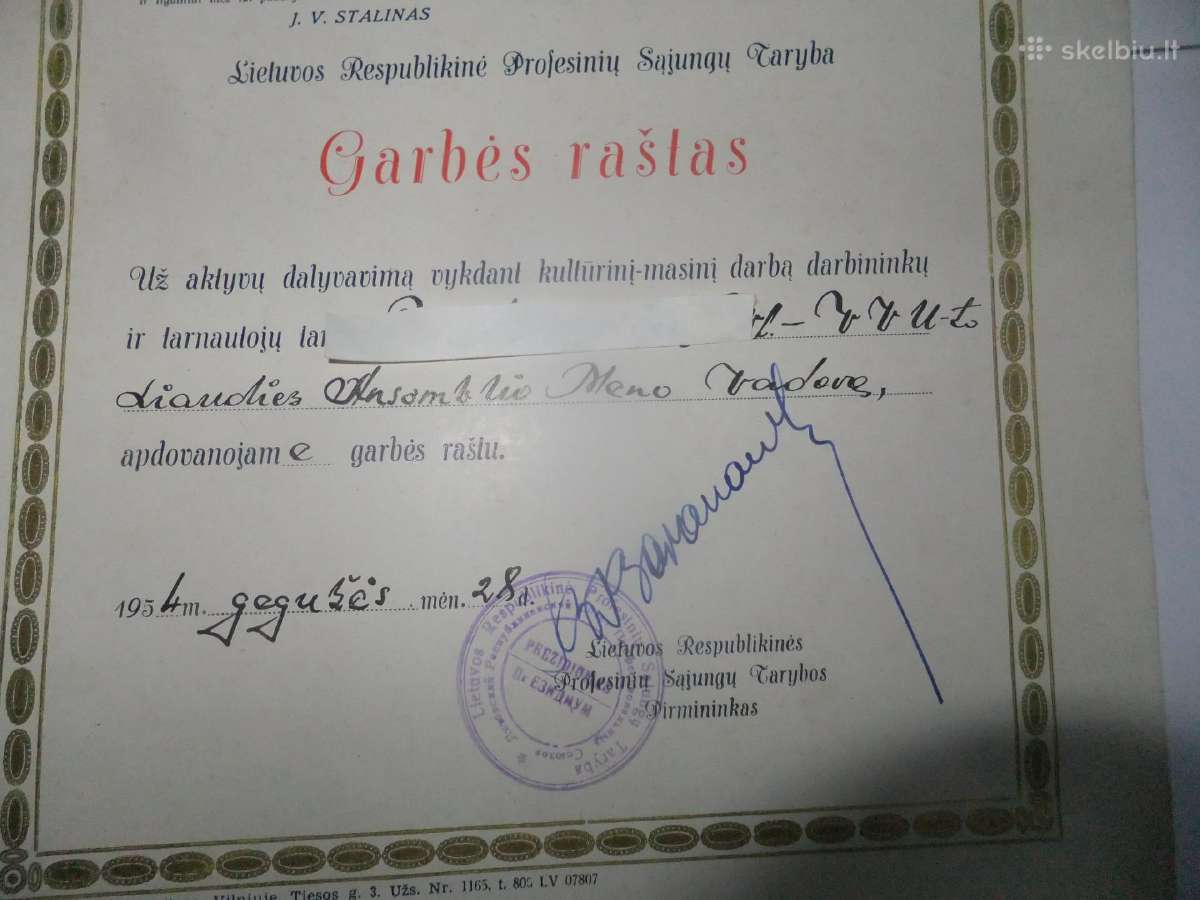 J. V. STALINAS
skelbiu.lt
Lietuvos Respublikinė Profesinių Sąjungų Taryba
Garbės raštas
Už aktyvų dalyvavimą vykdant kultūrinį-masinį darbą darbininkų
ir tarnautojų tar
VVU-to
Liaudies Ansamblio Meno Vadovą,
apdovanojame garbės raštu.
1954 m. gegužės mėn. 28 d.
Lietuvos Respublikinė Profesinių Sąjungų Taryba
PREZIDIUMAS
ПРЕЗИДИУМ
Lietuvos Respublikinės
Profesinių Sąjungų Tarybos
Pirmininkas
Vilniuje, Tiesos g. 3. Užs. Nr. 1165, t. 800 LV 07807